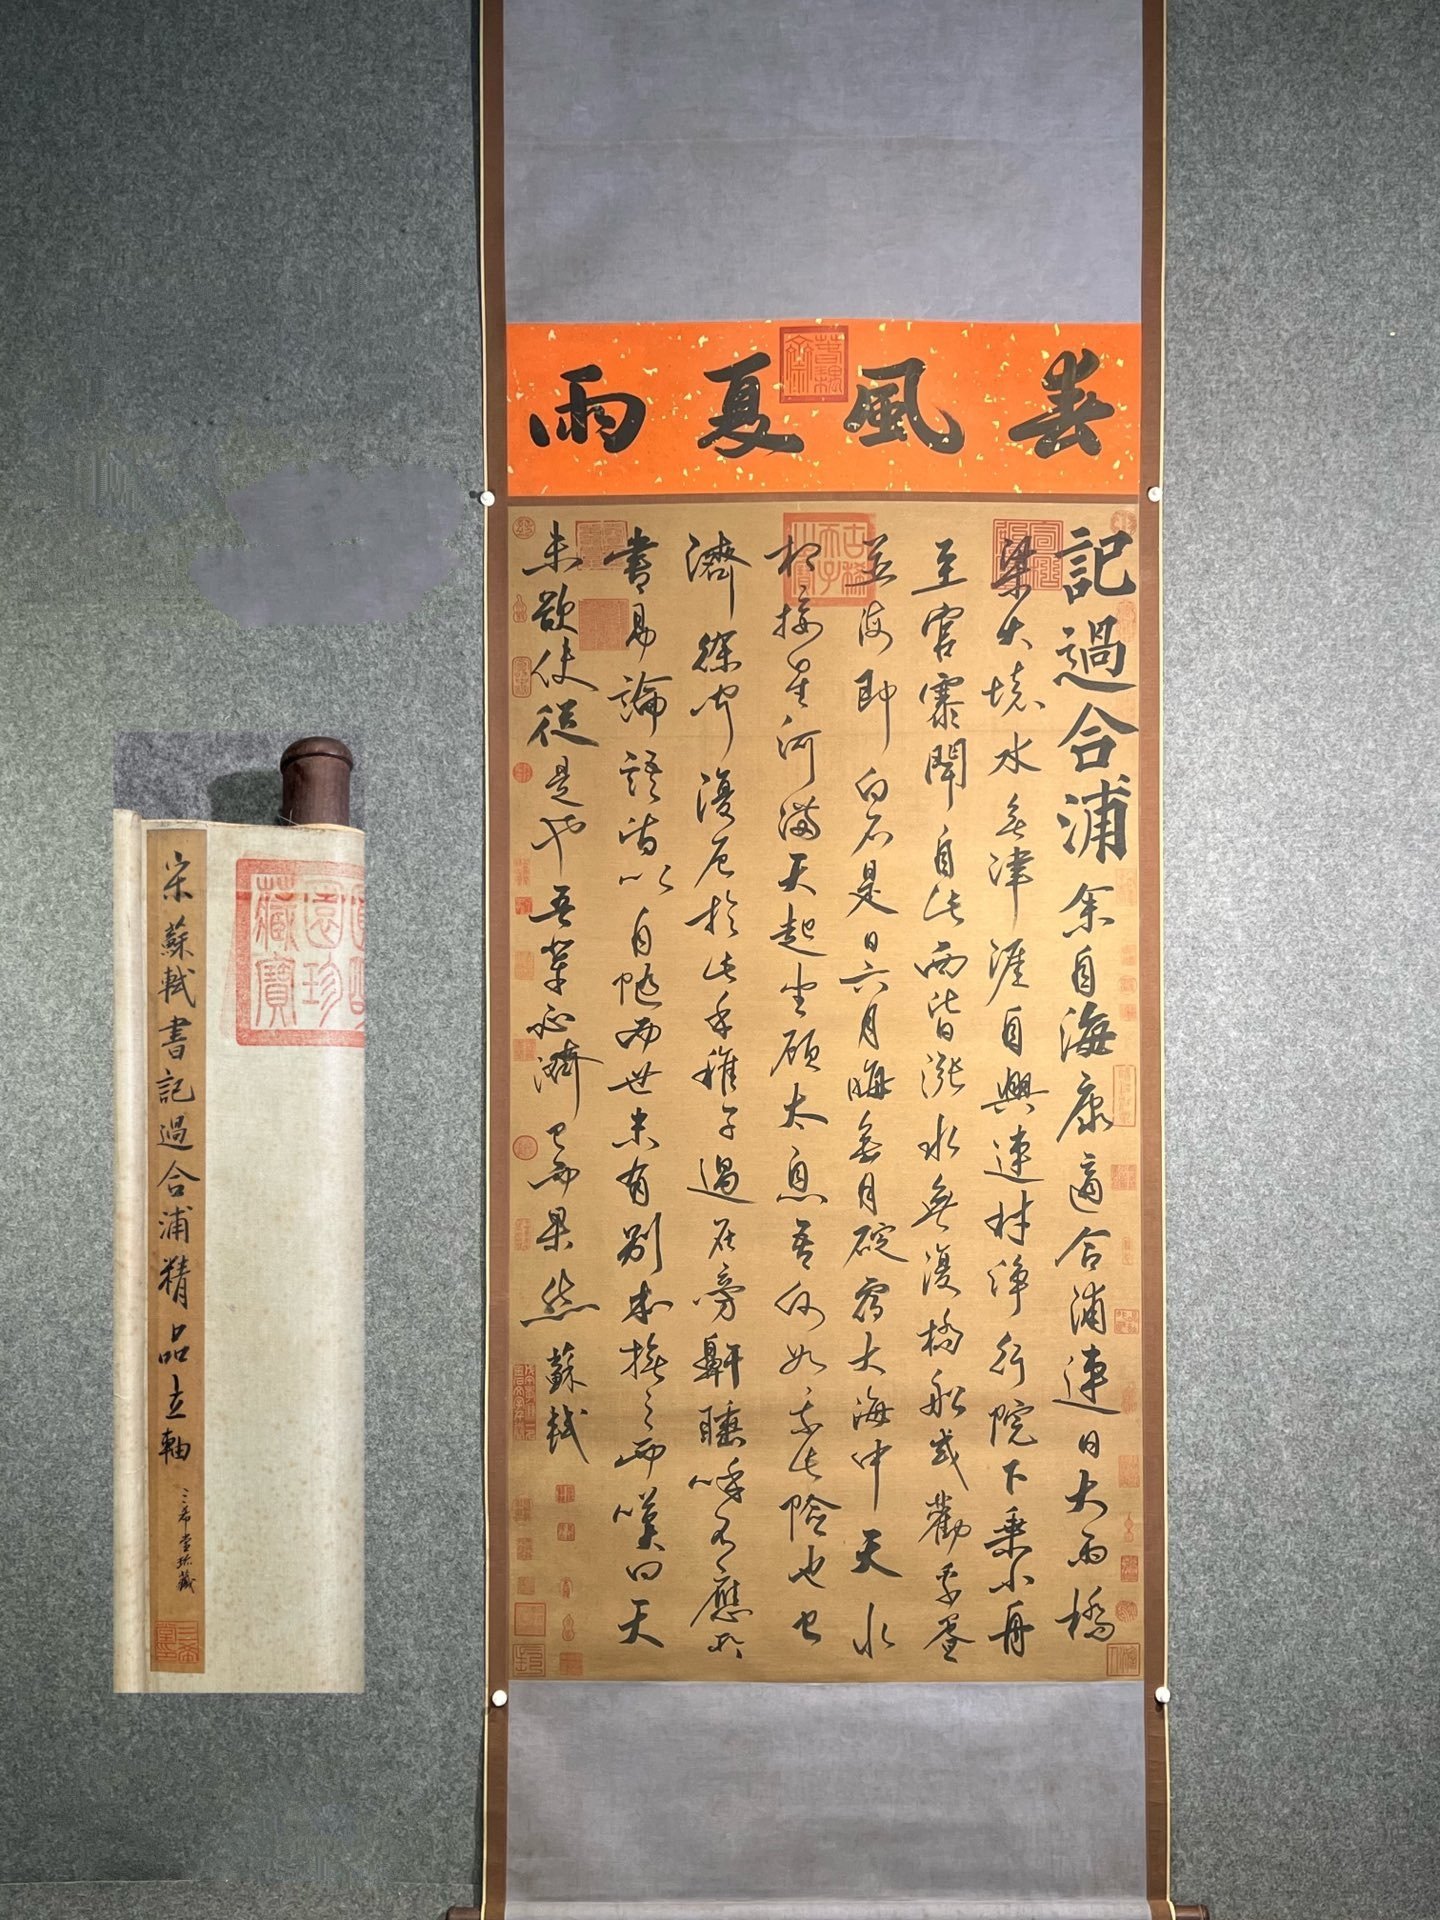 春風夏雨
記過合浦余自海康適合浦連日大雨橋
梁大壞水無津涯自興連村淨行院下乗小舟
至官寨聞自此西皆漲水無復橋船或勸乗蜑
並海即白石是日六月晦無月碇宿大海中天水
相接星河滿天起坐顧太息吾何如乗此險也已
濟徐聞復厄於此乎稚子過在旁鼾睡呼不應所
書易論語皆以自随而世未有别本撫之而嘆曰天
未欲使從是也吾輩必濟已而果然 蘇軾
宋蘇軾書記過合浦精品立軸
三希堂珍藏